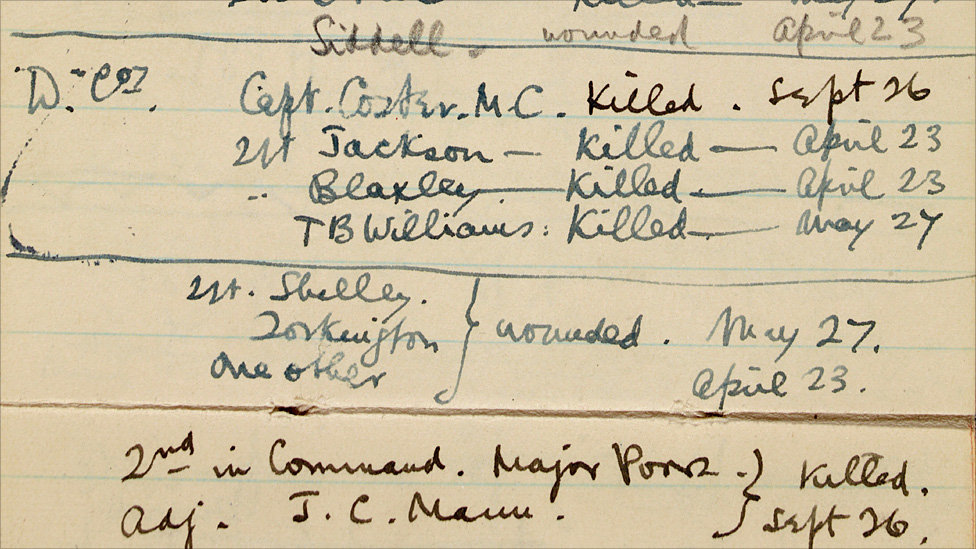 Killed — May 27.
Siddell. wounded April 23
D. Coy. Capt. Coster. M.C. Killed. Sept 26
2Lt Jackson — Killed — April 23
" Blaxley — Killed — April 23
T B Williams: Killed — May 27
2Lt. Shelley.
Torkington } wounded. May 27.
One other April 23.
2nd in Command. Major Poore. } Killed.
Adj. J. C. Mann. } Sept 26.